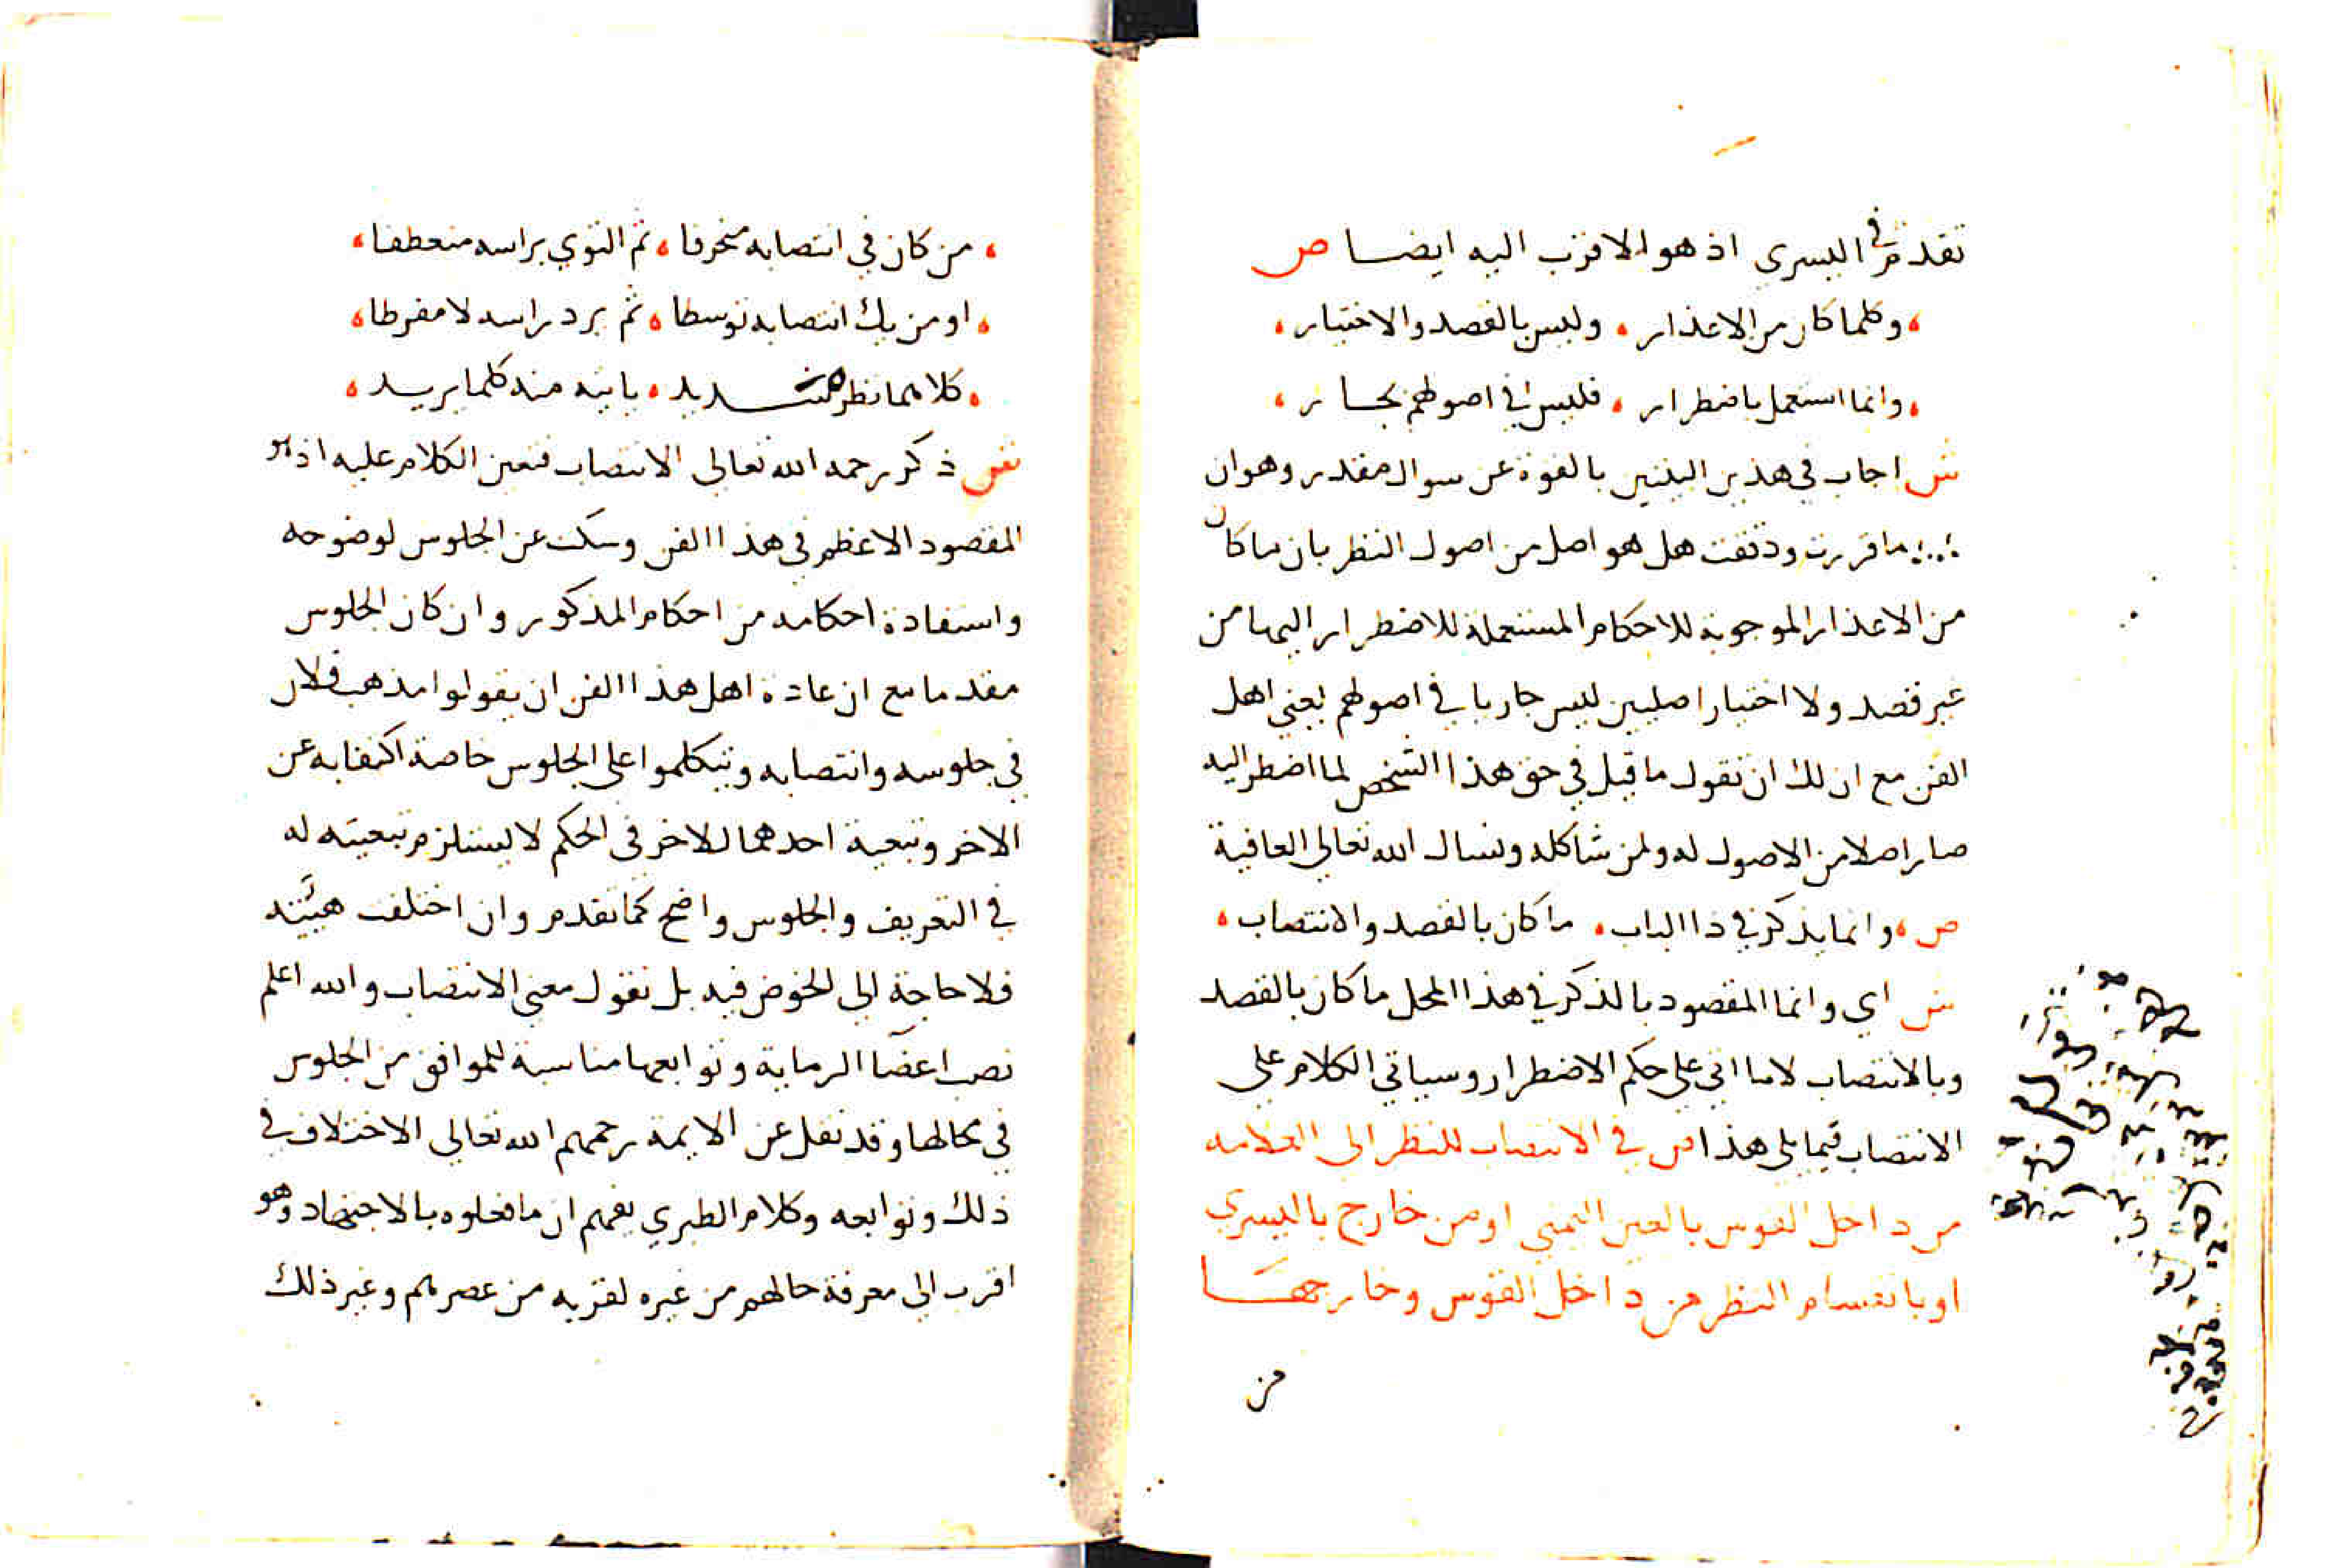 تقدم في اليسرى اذ هو الاقرب اليه ايضا ص
، وكلما كان من الاعذار ، وليس بالقصد والاختيار ،
، وانما استعمل باضطرار ، فليس في اصولهم بجار ،
ش اجاب في هذين البيتين بالقوة عن سوال مقدر وهو ان
ما قررت ودققت هل هو اصل من اصول النظر بان ما كان
من الاعذار الموجوبة للاحكام المستعملة للاضطرار اليها من
غير قصد ولا اختيار اصليين ليس جاريا في اصولهم يعني اهل
الفن مع ان لك ان تقول ما قيل في حق هذا الشخص لما اضطر اليه
صار اصلا من الاصول له ولمن شاكله ونسال الله تعالى العافية
ص ، وانما يذكر في ذا الباب ، ما كان بالقصد والانتصاب ،
ش اي وانما المقصود بالذكر في هذا المحل ما كان بالقصد
وبالانتصاب لا ما اتى على حكم الاضطرار وسياتي الكلام على
الانتصاب فيما يلي هذا ص في الانتصاب للنظر الى العلامه
من داخل القوس بالعين اليمني او من خارج باليسري
او بانقسام النظر من داخل القوس وخارجها
من
، من كان في انتصابه منحرفا ، ثم التوي براسه منعطفا ،
، او من يك انتصابه توسطا ، ثم يرد راسه لا مفرطا ،
، كلاهما نظره شديد ، ياتيه منه كلما يريد ،
ش ذكر رحمه الله تعالى الانتصاب فتعين الكلام عليه اذ هو
المقصود الاعظم في هذا الفن وسكت عن الجلوس لوضوحه
واستفادة احكامه من احكام المذكور وان كان الجلوس
مقدما مع ان عادة اهل هذا الفن ان يقولوا مذهب فلان
في جلوسه وانتصابه ويتكلموا على الجلوس خاصة اكتفا به عن
الاخر وتبعية احدهما للاخر في الحكم لا يستلزم تبعيته له
في التعريف والجلوس واضح كما تقدم وان اختلفت هيئته
فلا حاجة الى الخوض فيه بل نقول معنى الانتصاب والله اعلم
نصب اعضآ الرماية وتوابعها مناسبة للموافق من الجلوس
في محالها وقد نقل عن الايمة رحمهم الله تعالى الاختلاف في
ذلك وتوابعه وكلام الطبري يفهم ان ما فعلوه بالاجتهاد وهو
اقرب الى معرفة حالهم من غيره لقربه من عصرهم وغير ذلك